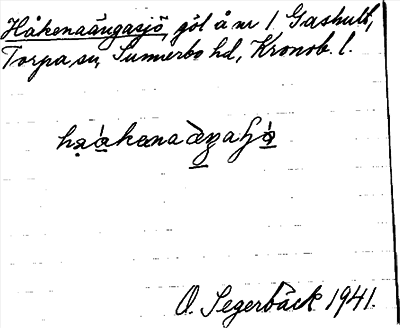 Håkenaängasjö, göl å nr 1 Gashult,
Torpa sn, Sunnerbo hd, Kronob. l.
O. Segerbäck 1941.